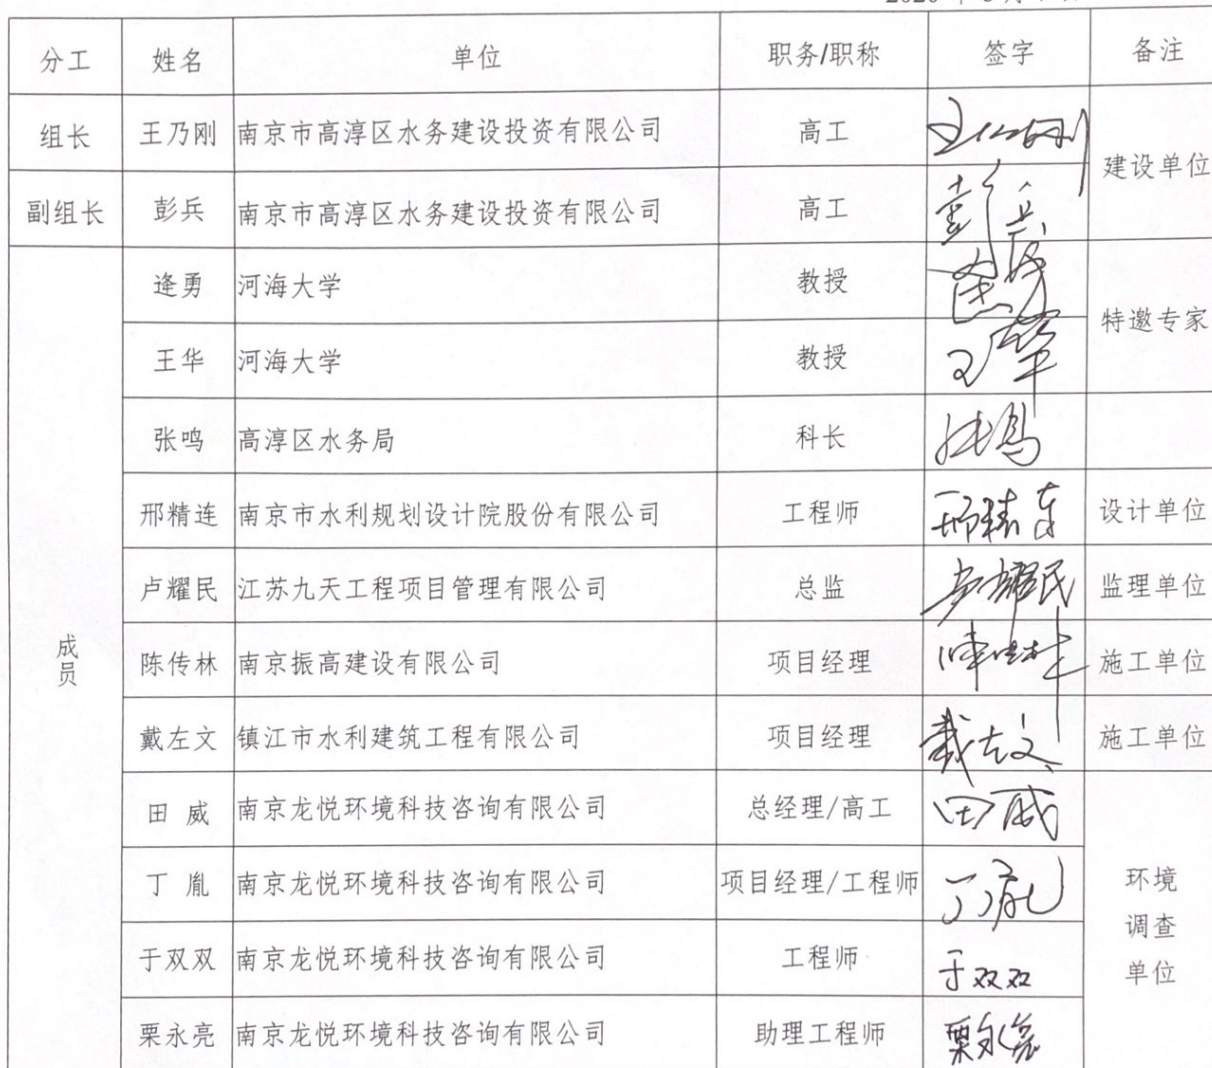 分工 姓名 单位 职务/职称 签字 备注
组长 王乃刚 南京市高淳区水务建设投资有限公司 高工 王乃刚 建设单位
副组长 彭兵 南京市高淳区水务建设投资有限公司 高工 彭兵
成员
逄勇 河海大学 教授 逄勇 特邀专家
王华 河海大学 教授 王华
张鸣 高淳区水务局 科长 张鸣
邢精连 南京市水利规划设计院股份有限公司 工程师 邢精连 设计单位
卢耀民 江苏九天工程项目管理有限公司 总监 卢耀民 监理单位
陈传林 南京振高建设有限公司 项目经理 施工单位
戴左文 镇江市水利建筑工程有限公司 项目经理 戴左文 施工单位
田 威 南京龙悦环境科技咨询有限公司 总经理/高工 田威 环境
丁 胤 南京龙悦环境科技咨询有限公司 项目经理/工程师 丁胤 调查
于双双 南京龙悦环境科技咨询有限公司 工程师 于双双 单位
栗永亮 南京龙悦环境科技咨询有限公司 助理工程师 栗永亮